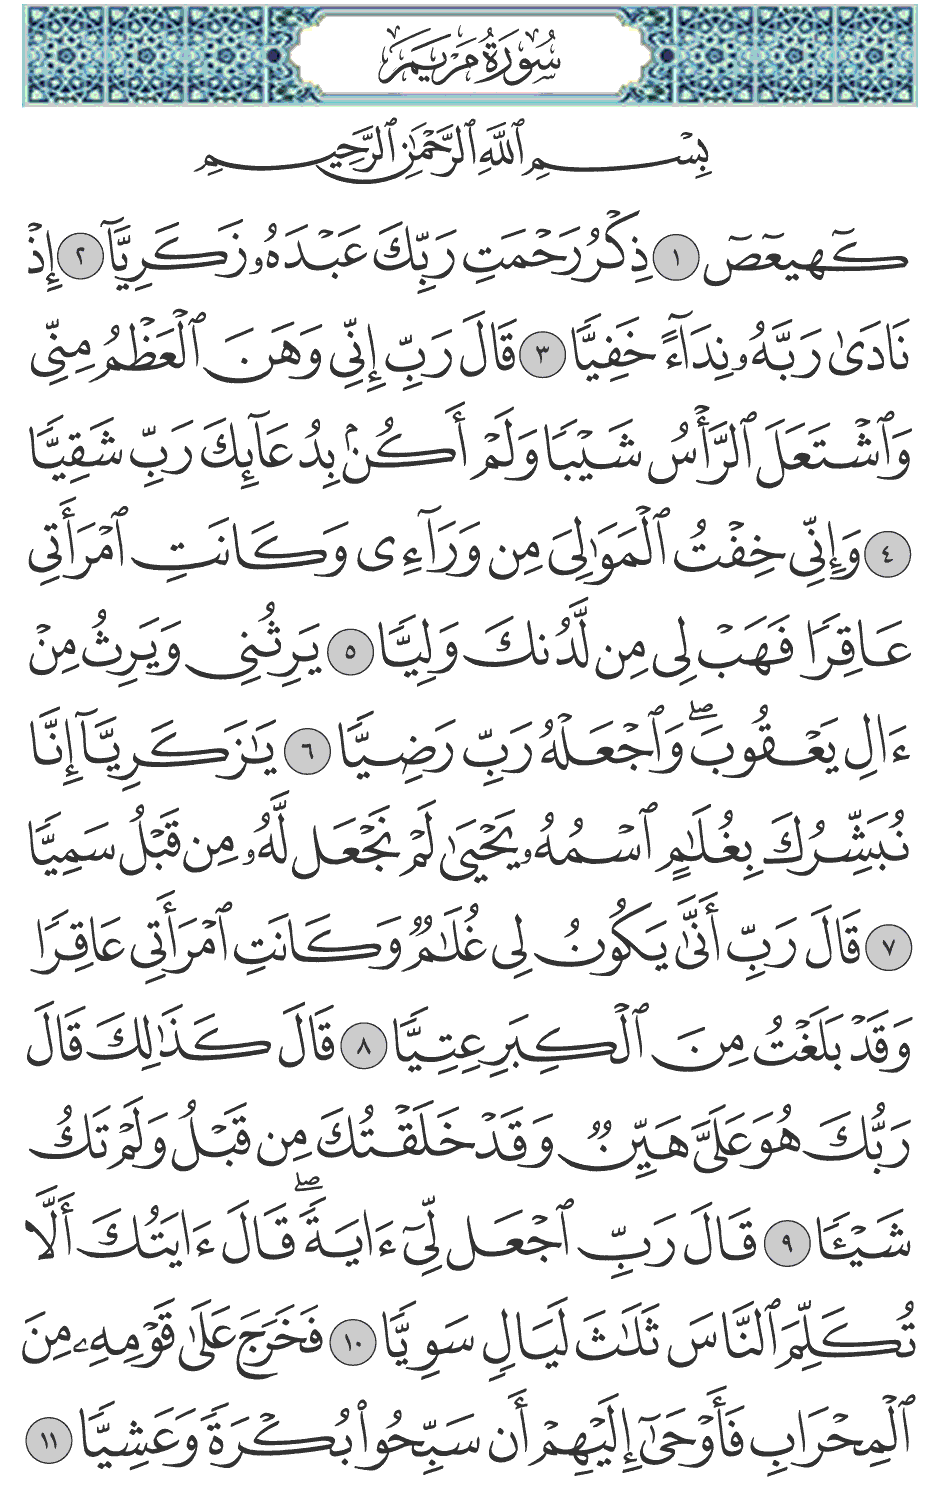 سُورَةُ مَرْيَمَ
بِسْمِ ٱللَّهِ ٱلرَّحْمَٰنِ ٱلرَّحِيمِ
كٓهيعٓصٓ ١ ذِكْرُ رَحْمَتِ رَبِّكَ عَبْدَهُۥ زَكَرِيَّآ ٢ إِذْ
نَادَىٰ رَبَّهُۥ نِدَآءً خَفِيًّا ٣ قَالَ رَبِّ إِنِّي وَهَنَ ٱلْعَظْمُ مِنِّي
وَٱشْتَعَلَ ٱلرَّأْسُ شَيْبًا وَلَمْ أَكُنۢ بِدُعَآئِكَ رَبِّ شَقِيًّا
٤ وَإِنِّي خِفْتُ ٱلْمَوَٰلِيَ مِن وَرَآءِي وَكَانَتِ ٱمْرَأَتِي
عَاقِرًا فَهَبْ لِي مِن لَّدُنكَ وَلِيًّا ٥ يَرِثُنِي وَيَرِثُ مِنْ
ءَالِ يَعْقُوبَ ۖ وَٱجْعَلْهُ رَبِّ رَضِيًّا ٦ يَٰزَكَرِيَّآ إِنَّا
نُبَشِّرُكَ بِغُلَٰمٍ ٱسْمُهُۥ يَحْيَىٰ لَمْ نَجْعَل لَّهُۥ مِن قَبْلُ سَمِيًّا
٧ قَالَ رَبِّ أَنَّىٰ يَكُونُ لِي غُلَٰمٌ وَكَانَتِ ٱمْرَأَتِي عَاقِرًا
وَقَدْ بَلَغْتُ مِنَ ٱلْكِبَرِ عِتِيًّا ٨ قَالَ كَذَٰلِكَ قَالَ
رَبُّكَ هُوَ عَلَيَّ هَيِّنٌ وَقَدْ خَلَقْتُكَ مِن قَبْلُ وَلَمْ تَكُ
شَيْـًٔا ٩ قَالَ رَبِّ ٱجْعَل لِّيٓ ءَايَةً ۖ قَالَ ءَايَتُكَ أَلَّا
تُكَلِّمَ ٱلنَّاسَ ثَلَٰثَ لَيَالٍ سَوِيًّا ١٠ فَخَرَجَ عَلَىٰ قَوْمِهِۦ مِنَ
ٱلْمِحْرَابِ فَأَوْحَىٰٓ إِلَيْهِمْ أَن سَبِّحُوا۟ بُكْرَةً وَعَشِيًّا ١١